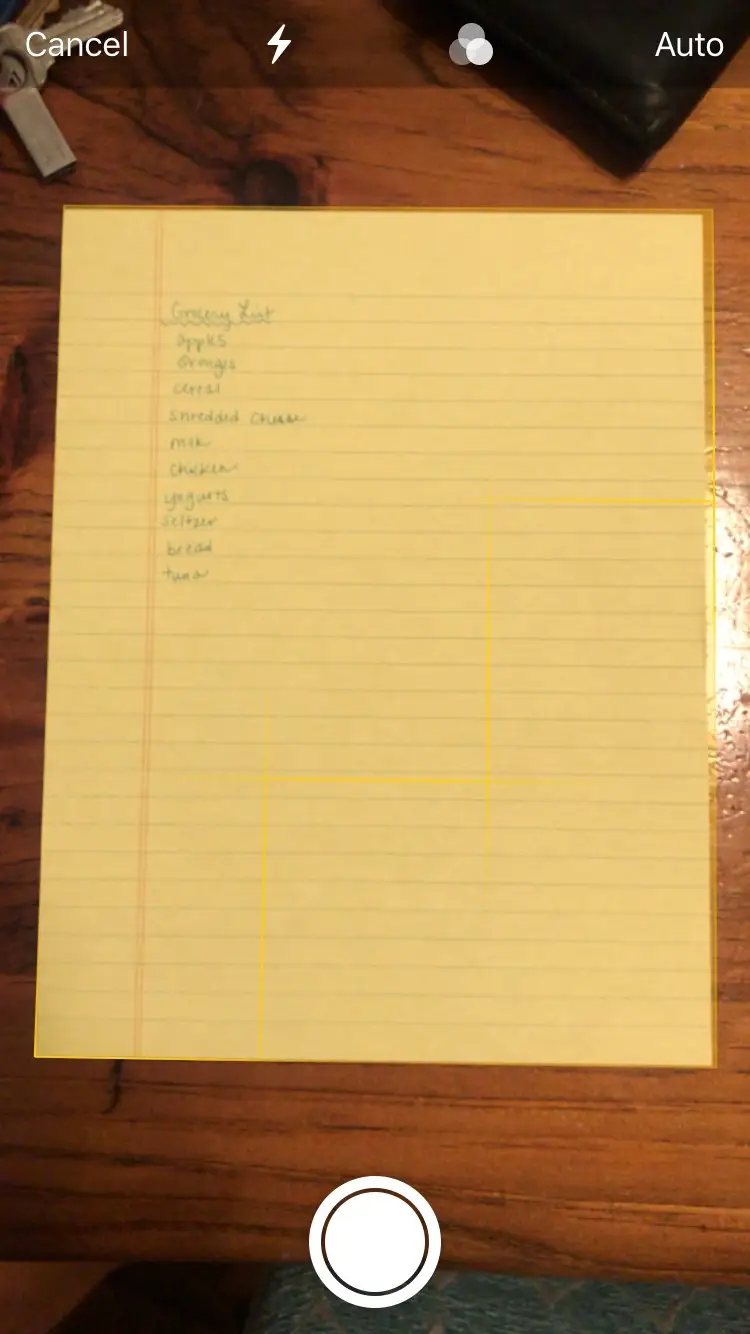 Cancel
Auto
Grocery List
apples
oranges
cereal
shredded cheese
milk
chicken
yogurts
seltzer
bread
tuna